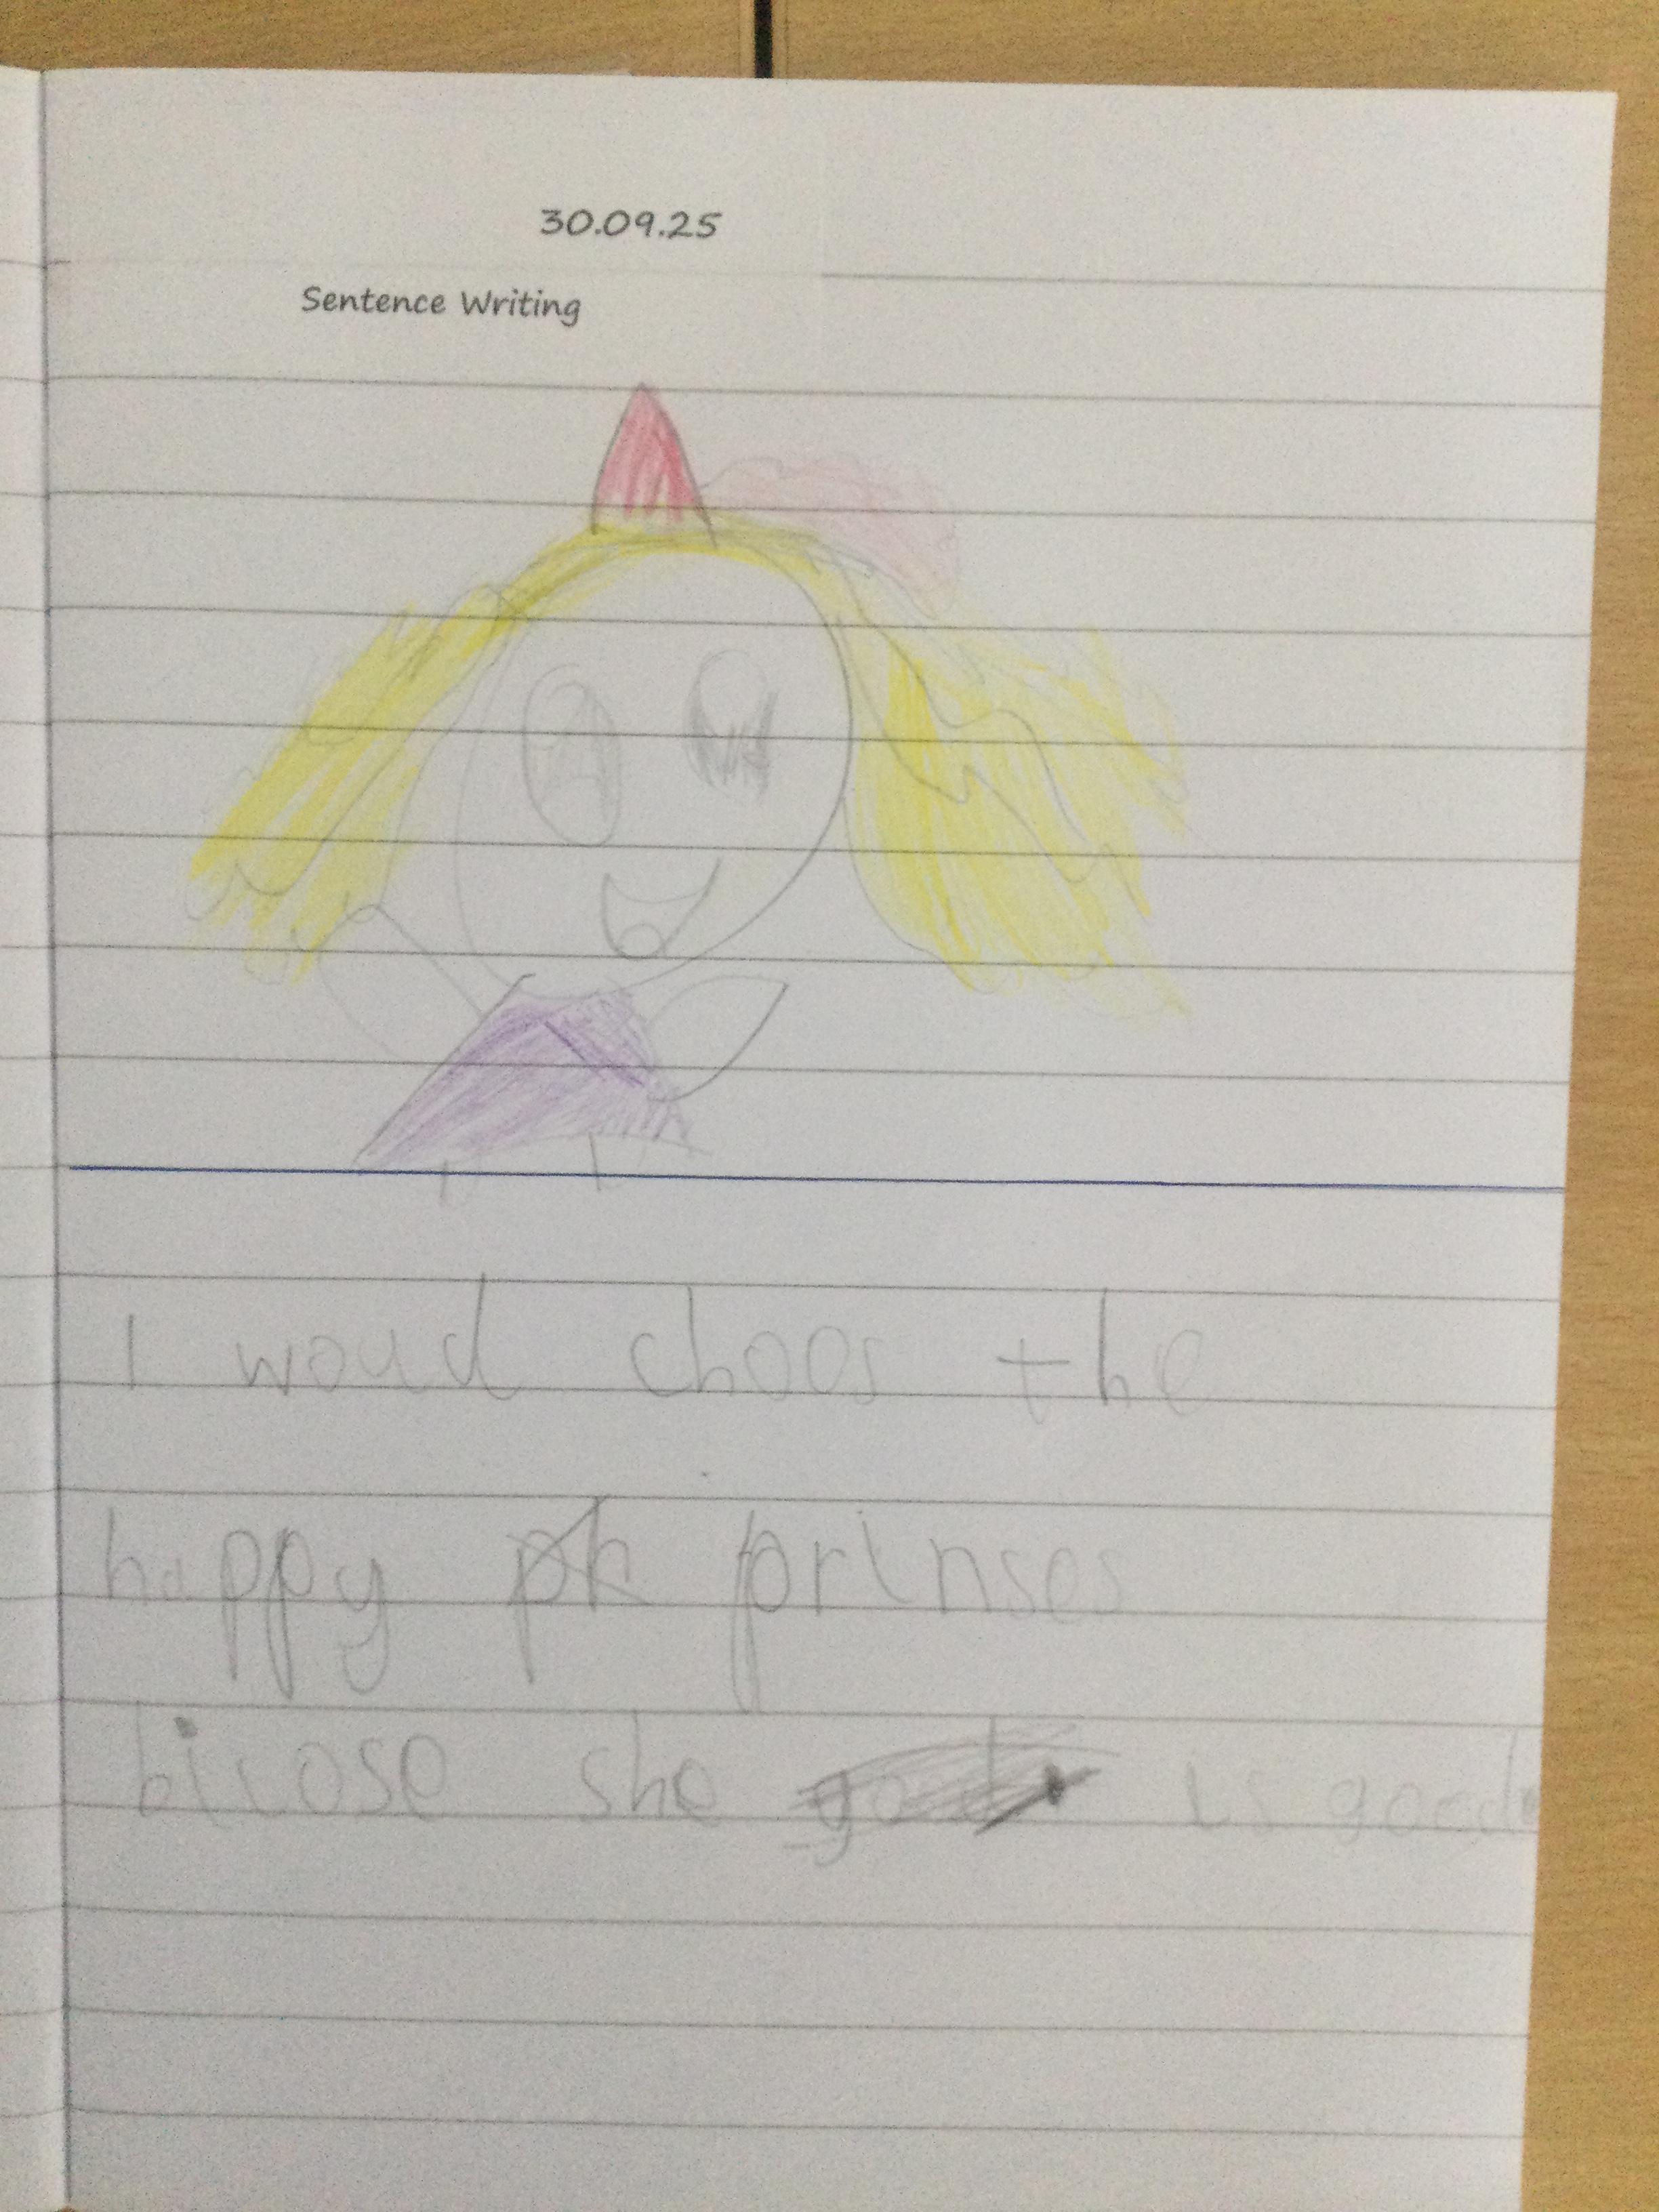 30.09.25
Sentence Writing
I woud choos the
happy prinses
bicose she is good